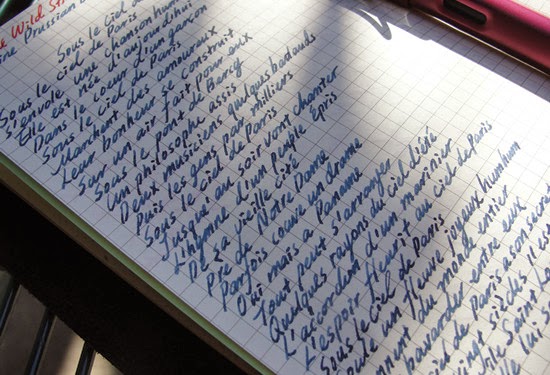 Wild St
Prussian
Sous le ciel de
Sous le ciel de Paris
S'envole une chanson hum
Elle est née d'aujourd'hui
Dans le coeur d'un garçon
Sous le ciel de Paris
Marchent des amoureux
Leur bonheur se construit
Sur un air fait pour eux
Un philosophe assis
Deux musiciens quelques badauds
Puis les gens par milliers
Sous le ciel de Paris
Jusqu'au soir vont chanter
L'hymne d'un peuple épris
De sa vieille cité
Pre de Notre Dame
Parfois couve un drame
Oui mais a Paname
Tout peut s'arranger
Quelques rayons du ciel d'été
L'accordeon d'un marinier
L'espoir fleurit au ciel de Paris
Sous le ciel de Paris
oule un fleuve joyeux hum hum
du monde entier
bavarder entre eux
ciel de Paris a son secret
vingt siècles
île Saint L
lui